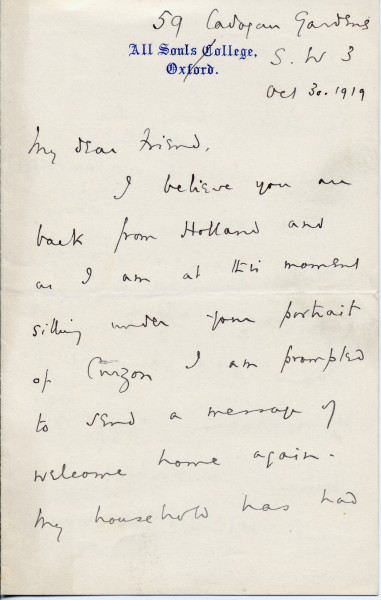 59 Cadogan Gardens
All Souls College,
S. W 3
Oxford.
Oct 30. 1919
My dear Friend,
I believe you are
back from Holland and
as I am at this moment
sitting under your portrait
of Curzon I am prompted
to send a message of
welcome home again.
My household has had